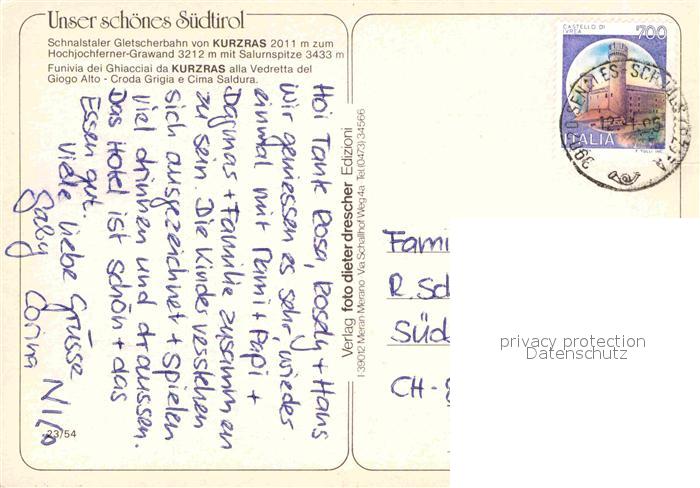 Unser schönes Südtirol
Schnalstaler Gletscherbahn von KURZRAS 2011 m zum
Hochjochferner-Grawand 3212 m mit Salurnspitze 3433 m
Funivia dei Ghiacciai da KURZRAS alla Vedretta del
Giogo Alto - Croda Grigia e Cima Saldura.
Hoi Tant Rosa, Rosely + Hans
Wir geniessen es sehr, wieder
einmal mit Mami + Papi +
Dagmar + Familie zusammen
zu sein. Die Kinder verstehen
sich ausgezeichnet + spielen
viel drinnen und draussen.
Das Hotel ist schön + das
Essen gut.
Viele liebe Grüsse
Gaby Corina Nilo
23/54
Verlag foto dieter drescher Edizioni
I-39012 Meran Merano · Via Schallhof Weg 4a · Tel (0473) 34566
CASTELLO DI
IVREA
700
ITALIA
Fami
R. Sc
Süd
CH-8
privacy protection
Datenschutz